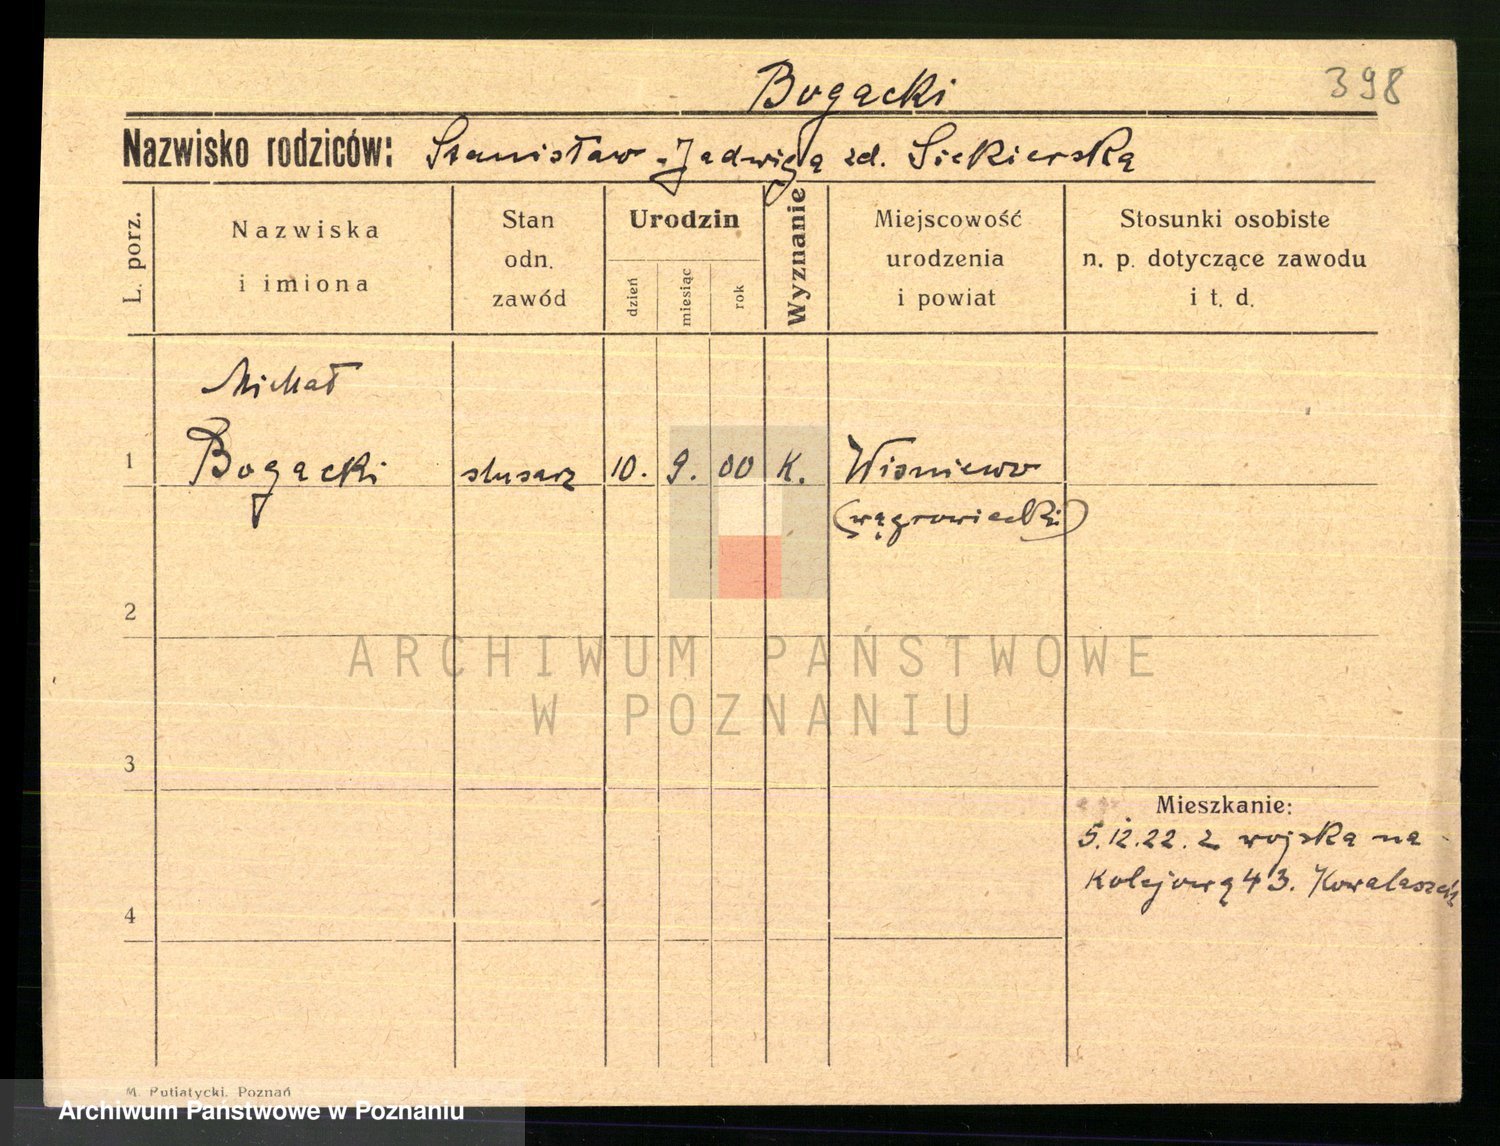 Bogacki
398
Nazwisko rodziców: Stanisław - Jadwigą zd. Siekierską
L. porz.
Nazwiska
i imiona
Stan
odn.
zawód
Urodzin
dzień
miesiąc
rok
Wyznanie
Miejscowość
urodzenia
i powiat
Stosunki osobiste
n. p. dotyczące zawodu
i t. d.
Michał
1 Bogacki ślusarz 10. 9. 00 K. Wisniewo
(wągrowiecki)
2
ARCHIWUM PAŃSTWOWE
W POZNANIU
3
Mieszkanie:
5.12.22. z wojska na
4 Kolejową 43.
M. Putiatycki. Poznań
Archiwum Państwowe w Poznaniu